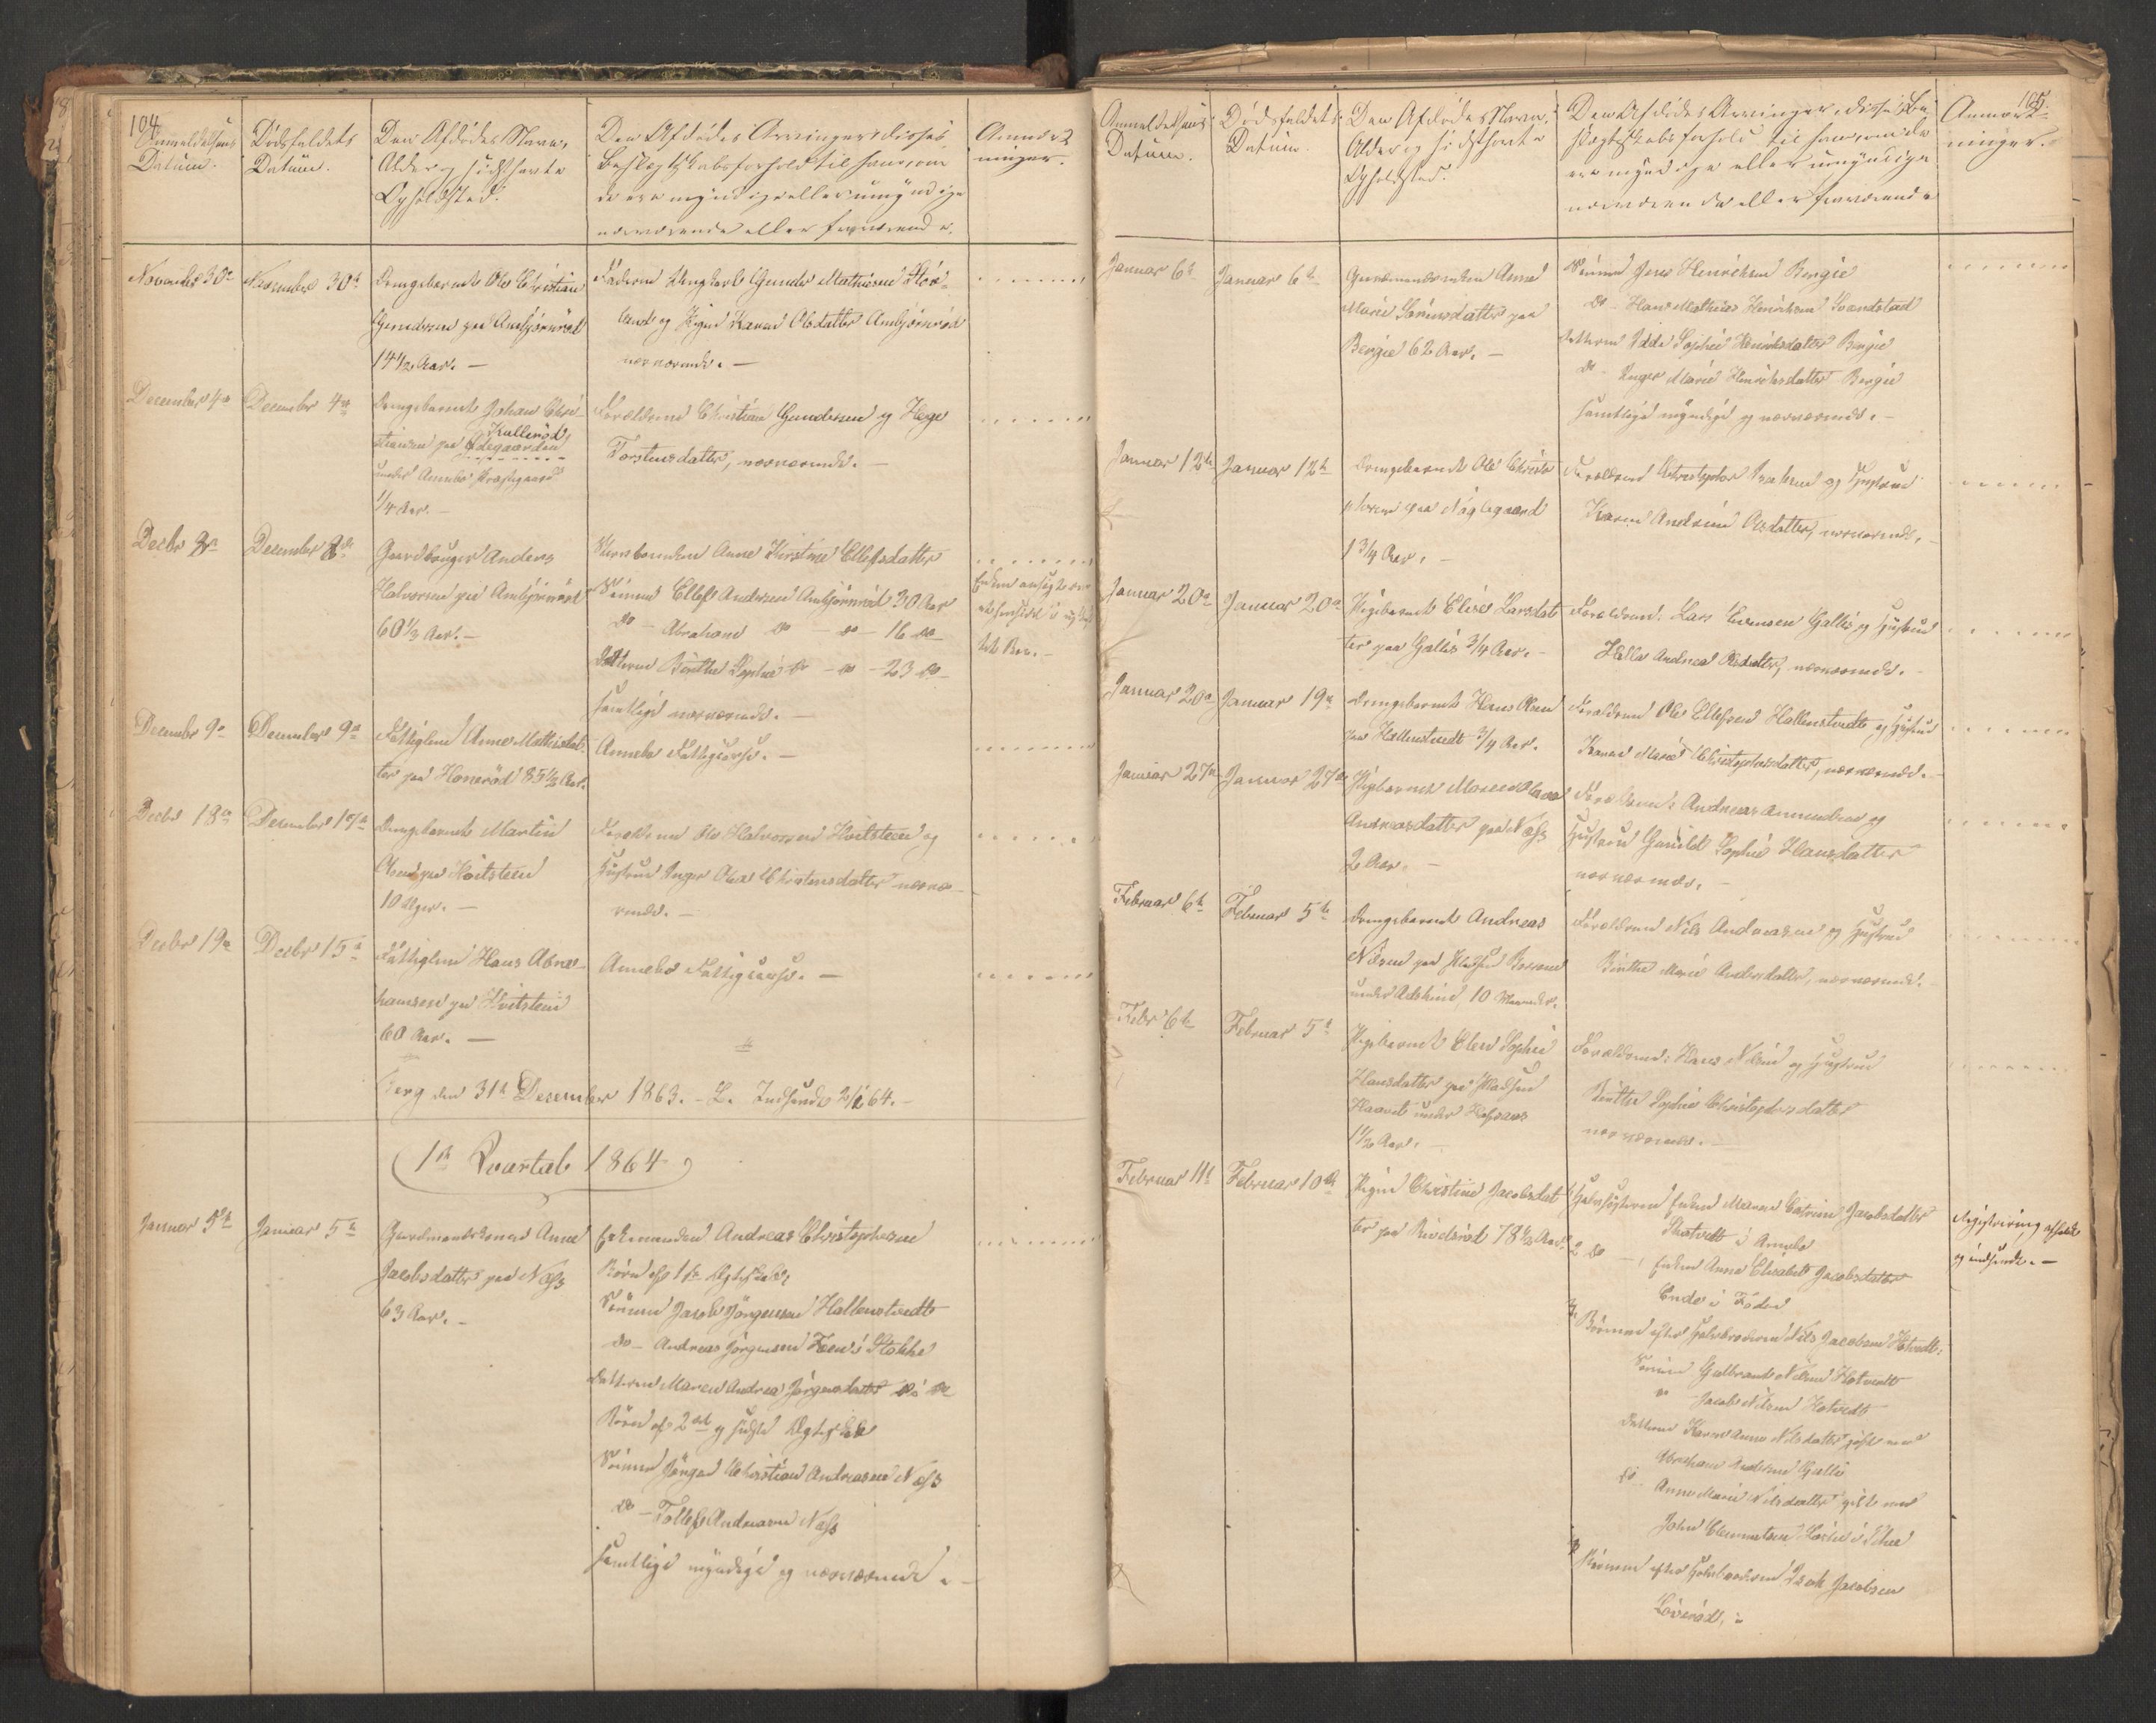 104
Anmeldelsens
Datum.
Dödsfaldets
Datum.
Den Afdödes Navn,
Alder og sidst havte
Opholdsted.
Den Afdödes Arvinger, disses
Beslægtskabsforhold til ham, som
de ere myndige eller umyndige
nærværende eller fraværende.
Anmærk-
ninger.
November 30te
November 30te
Drengebarnet Ole Christian
Gundersen paa Ambjörnröd
14 1/2 Aar. —
Faderen Ungkarl Gunder Mathisen
og Pigen Karen Olsdatter Ambjörnröd
nærværende. —
December 4de
December 4de
Drengebarnet Johan Chri-
stiansen paa Ødegaarden Kulleröd
under Annebo Præstegaard
1/4 Aar. —
Forældrene Christian Gundersen og Hege
Torstensdatter, nærværende. —
Decbr
December
Gaardbruger Anders
Halvorsen paa Ambjörnröd
60 1/3 Aar. —
Anne Kirstine Ellefsdatter
Sönnen Ellef Andersen Ambjörnröd 30 Aar
do - Abraham do - do - 16 do
Datteren Birthe Sophie do - do - 23 do
samtlige nærværende. —
Enken
Bo. —
December 9de
December 9de
Fattiglem Anne Mathisdat-
ter paa Honeröd 85 1/2 Aar.
Annebo Fattigkasse. —
Decbr 18de
December 17de
Drengebarnet Martin
Olsen paa Hvitsteen
10 Uger. —
Forældrene Ole Halvorsen Hvitsteen og
Hustrue Inger Olea Christensdatter nærvæ-
rende. —
Decbr 19de
Decbr 15de
Fattiglem Hans Abra-
hamsen paa Hvitsteen
60 Aar. —
Annebo Fattigkasse. —
Berg den 31te December 1863. - L. Indsendt 2/1 64. —
1ste Qvartal 1864
Januar 5te
Januar 5te
Gaardmandskonen Anne
Jacobsdatter paa Næss
63 Aar. —
Enkemanden Andreas Christophersen
Börn af 1ste Ægteskab:
Sönnen Jacob Jörgensen Hallenstvedt
do - Andreas Jörgensen Foen i Stokke
Datteren Maren Andrea Jörgensdatter do i do
Börn af 2det og sidste Ægteskab
Sönnen Jörgen Christian Andreasen Næss
do - Tollef Andreasen Næss
samtlige myndige og nærværende. —
105.
Anmeldelsens
Datum.
Dödsfaldets
Datum.
Den Afdödes Navn,
Alder og sidst havte
Opholdsted.
Den Afdödes Arvinger, disses Be-
slægtskabsforhold til ham, om de
ere myndige eller umyndige
nærværende eller fraværende
Anmærk-
ninger.
Januar 6te
Januar 6te
Gaardmandsenken Anne
Marie Sörensdatter paa
Bergie 62 Aar. —
Sönnen Jens Henriksen Bergie
do - Hans Mathias Henriksen Svendstad
Datteren Idde Sophie Henriksdatter Bergie
do - Inger Marie Henriksdatter Bergie
samtlige myndige og nærværende. —
Januar 12te
Januar 12te
Drengebarnet Ole Christo-
phersen paa Nöglegaard
1 3/4 Aar. —
Forældrene Christopher Isaksen og Hustrue
Karen Andrine Olsdatter, nærværende. —
Januar 20de
Januar 20de
Pigebarnet Elise Larsdat-
ter paa Gallis 3/4 Aar. —
Forældrene: Lars Evensen Gallis og Hustrue
Helle Andrea Olsdatter, nærværende. —
Januar 20de
Januar 19de
Drengebarnet Hans Olsen
paa Hallenstvedt 3/4 Aar.
Forældrene Ole Ellefsen Hallenstvedt og Hustrue
Karen Marie Christophersdatter, nærværende. —
Januar 27de
Januar 27de
Pigebarnet Maren Olava
Andreasdatter paa Næss
2 Aar. —
Forældrene: Andreas Amundsen og
Hustrue Gunild Sophie Hansdatter
nærværende. —
Februar 6te
Februar 5te
Drengebarnet Andreas
Nilsen paa Pladsen
under Adskind, 10 Maaneder.
Forældrene Nils Andreasen og Hustrue
Birthe Marie Andersdatter, nærværende.
Febr 6te
Februar 5te
Pigebarnet Elen Sophie
Hansdatter paa Pladsen
Haavet under
1 1/2 Aar. —
Forældrene: Hans Nilsen og Hustrue
Birthe Sophie Christophersdatter
nærværende. —
Februar 11te
Februar 10de
Pigen Christine Jacobsdat-
ter paa Rivelsröd 78 1/2 Aar.
1 Halvsösteren Enken Maren Catrine Jacobsdatter
i Annebo
2 do - , Enken Anne Elisabet Jacobsdatter
Ende i Foden
3, Börnene efter Halvbroderen Nils Jacobsen Hotvedt:
Sönnen Gulbrand Nilsen Hotvedt
do Jacob Nilsen Hotvedt
Datteren Karen Anne Nilsdatter gift med
Abraham Andersen Gallis
do - Anne Marie Nilsdatter gift med
John Clemmetsen
Börnene efter Halvbroderen Isak Jacobsen
Löveröd, :
Registrering afholdt
og indsendt. —